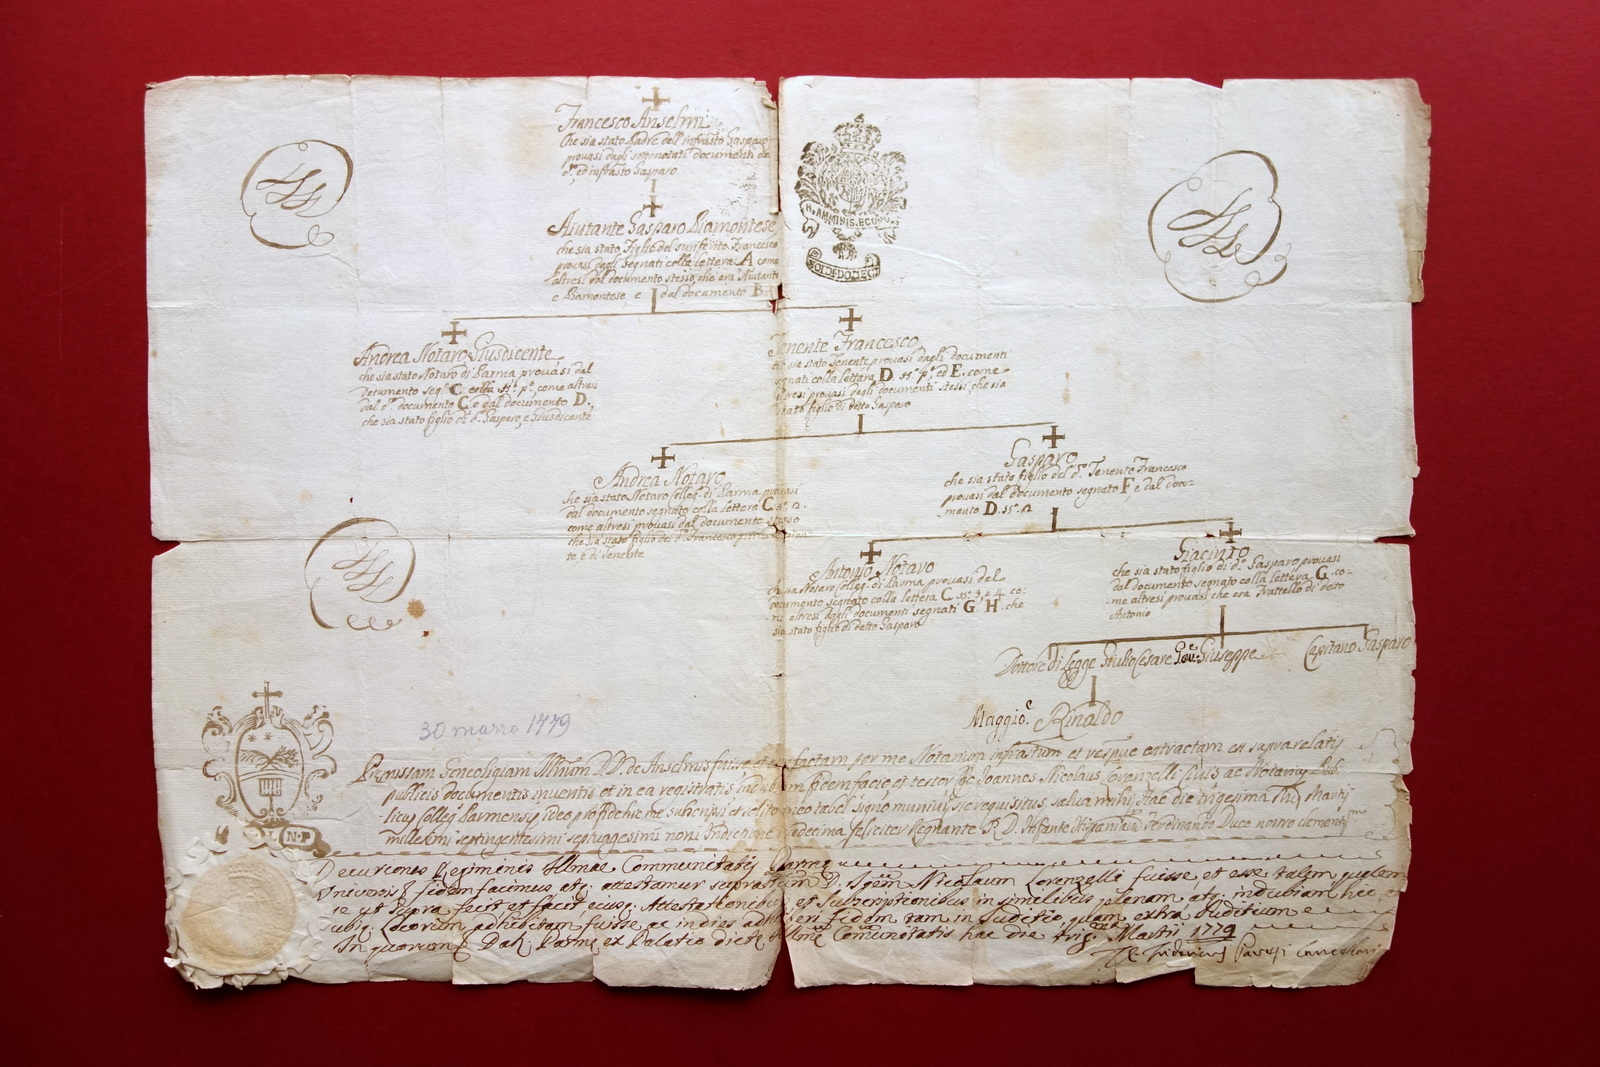 Francesco Anselmi
Che sia stato Padre dell'infrasto Gasparo
provasi dagli sottonotati documenti de
d.º, ed infrasto Gasparo
Aiutante Gasparo Piamontese
che sia stato Figlio del surriferito Francesco
provasi dagli segnati colla lettera A come
altresi dal documento stesso, che era Aiutante
e Piamontese, e dal documento B
H. AMMINIS. ECONO.
SOLDI DODECI
Andrea Notaro, Giusdicente
che sia stato Notaro di Parma provasi dal
Documento seg.º C. colla p.º, come altresi
dal d.º documento C. e dal documento D.,
che sia stato figlio di d.º Gasparo, e Giusdicente
Tenente Francesco
che sia stato Tenente provasi dagli documenti
segnati colla lettera D. p.º ed E. come
altresi provasi dagli documenti stessi, che sia
stato figlio di detto Gasparo
Andrea Notaro
che sia stato Notaro Colleg.º di Parma provasi
dal documento segnato colla lettera C
come altresi provasi dal documento stesso
che sia stato figlio del d.º Francesco
te, e di Tenente
Gasparo
che sia stato figlio del d.º Tenente Francesco
provasi dal documento segnato F, e dal docu-
mento D.
Antonio Notaro
che sia Notaro Colleg.º di Parma provasi del
documento segnato colla lettera C 3, e 4 co-
me altresi dagli documenti segnati G H. che
sia stato figlio di detto Gasparo
Giacinto
che sia stato figlio di d.º Gasparo provasi
dal documento segnato colla lettera G. co-
me altresi provasi che era Frattello di detto
Antonio
Dottore di Legge Giulio Cesare Giuseppe Capitano Gasparo
Maggio.e Rinaldo
30 marzo 1779
Premissam Geneologiam Illmum D.D. de Anselmis fuisse factam per me Notarium infrastum et vesque extractam ex supra relatis
publicis documentis inventis et in ea registratis fidem facio et testor Ego Joannes Nicolaus Lorenzelli Civis ac Notarius Pub-
licus Colleg. Parmensis, ideo pro fide hic me subscripsi et solito meo tabel. signo munivi sic requisitus, salva mihi die trigesima Martij
millesimi septingentesimi septuagesimi noni Indictione Duodecima feliciter Regnante R. D. Infante Hispaniar. Ferdinando Duce nostro clemenss.mo
L. N. P
Decuriones Regiminis Illmae Communitatis Parmae
Universis fidem facimus atq. attestamur suprastum D. Nicolaum Lorenzelli fuisse, et esse talem qualem
se ut supra fecit et facit, eiusq. Attestationibus et Subscriptionibus in similibus plenam atq. indubiam hic, et
ubiq. Locorum adhibitam fuisse ac indies adhiberi fidem tam in Juditio, quam extra Juditium
In quorum Dat. Parmae ex Palatio dictae Illmae Comunitatis hac die trig. Martii 1779
Cancellarius